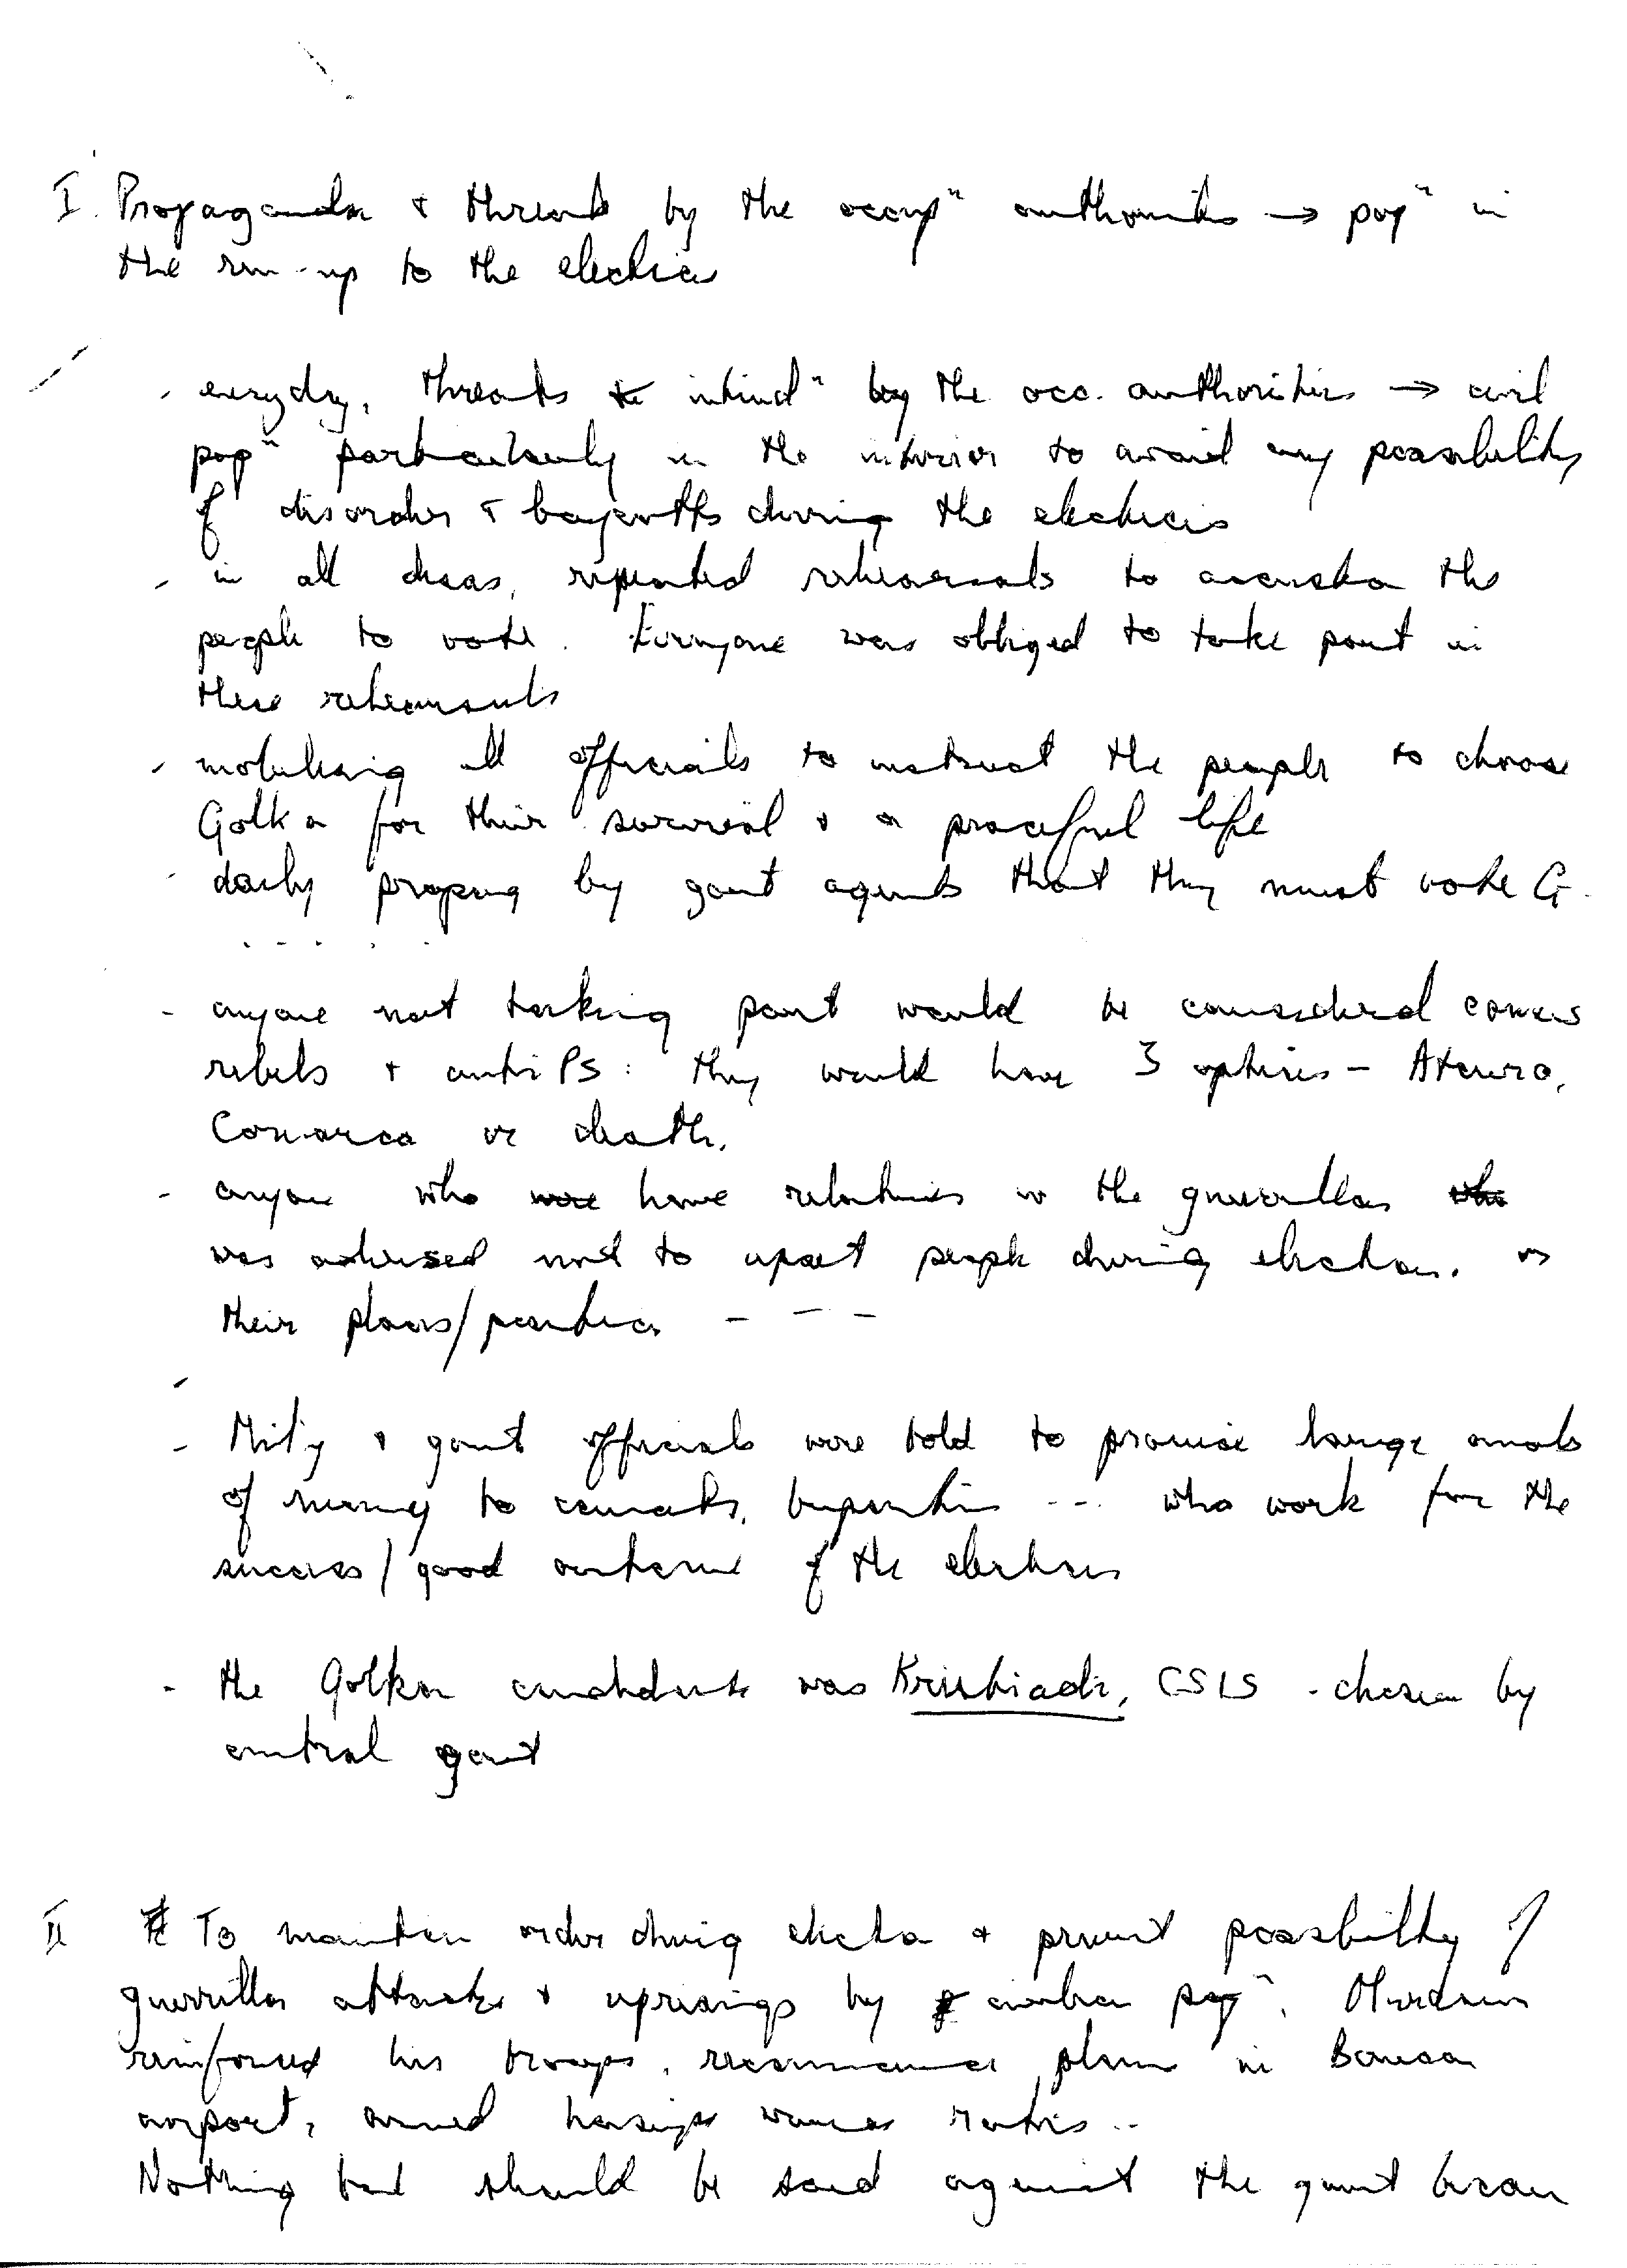 I. Propaganda & threats by the occupⁿ authorities → popⁿ in
the run-up to the elections
- everyday, threats & intimidⁿ by the occ. authorities → civil
popⁿ particularly in the interior to avoid any possibility
of disorder & boycotts during the elections
- in all areas, repeated rehearsals to accustom the
people to vote. Everyone was obliged to take part in
these rehearsals
- mobilising all officials to instruct the people to choose
Golkar for their survival & a peaceful life
- daily propag by govt agents that they must vote G.
- anyone not taking part would be considered
rebels & anti PS: they would have 3 options - Atauro,
Comarca or death.
- anyone who were have relatives w the guerrillas who
was advised not to upset people during election. as
their plans/
- Mil'y & govt officials were told to promise large amts
of money to camats, bupatis --- who work for the
success/good outcome of the elections
- the Golkar candidate was Kristiadi, CSIS - chosen by
central govt
II To maintain order during election & prevent possibility of
guerrilla attacks & uprisings by civilian popⁿ, Murdani
reinforced his troops, reconnaissance plane in Baucau
airport, armed hansips various
Nothing bad should be said against the govt because